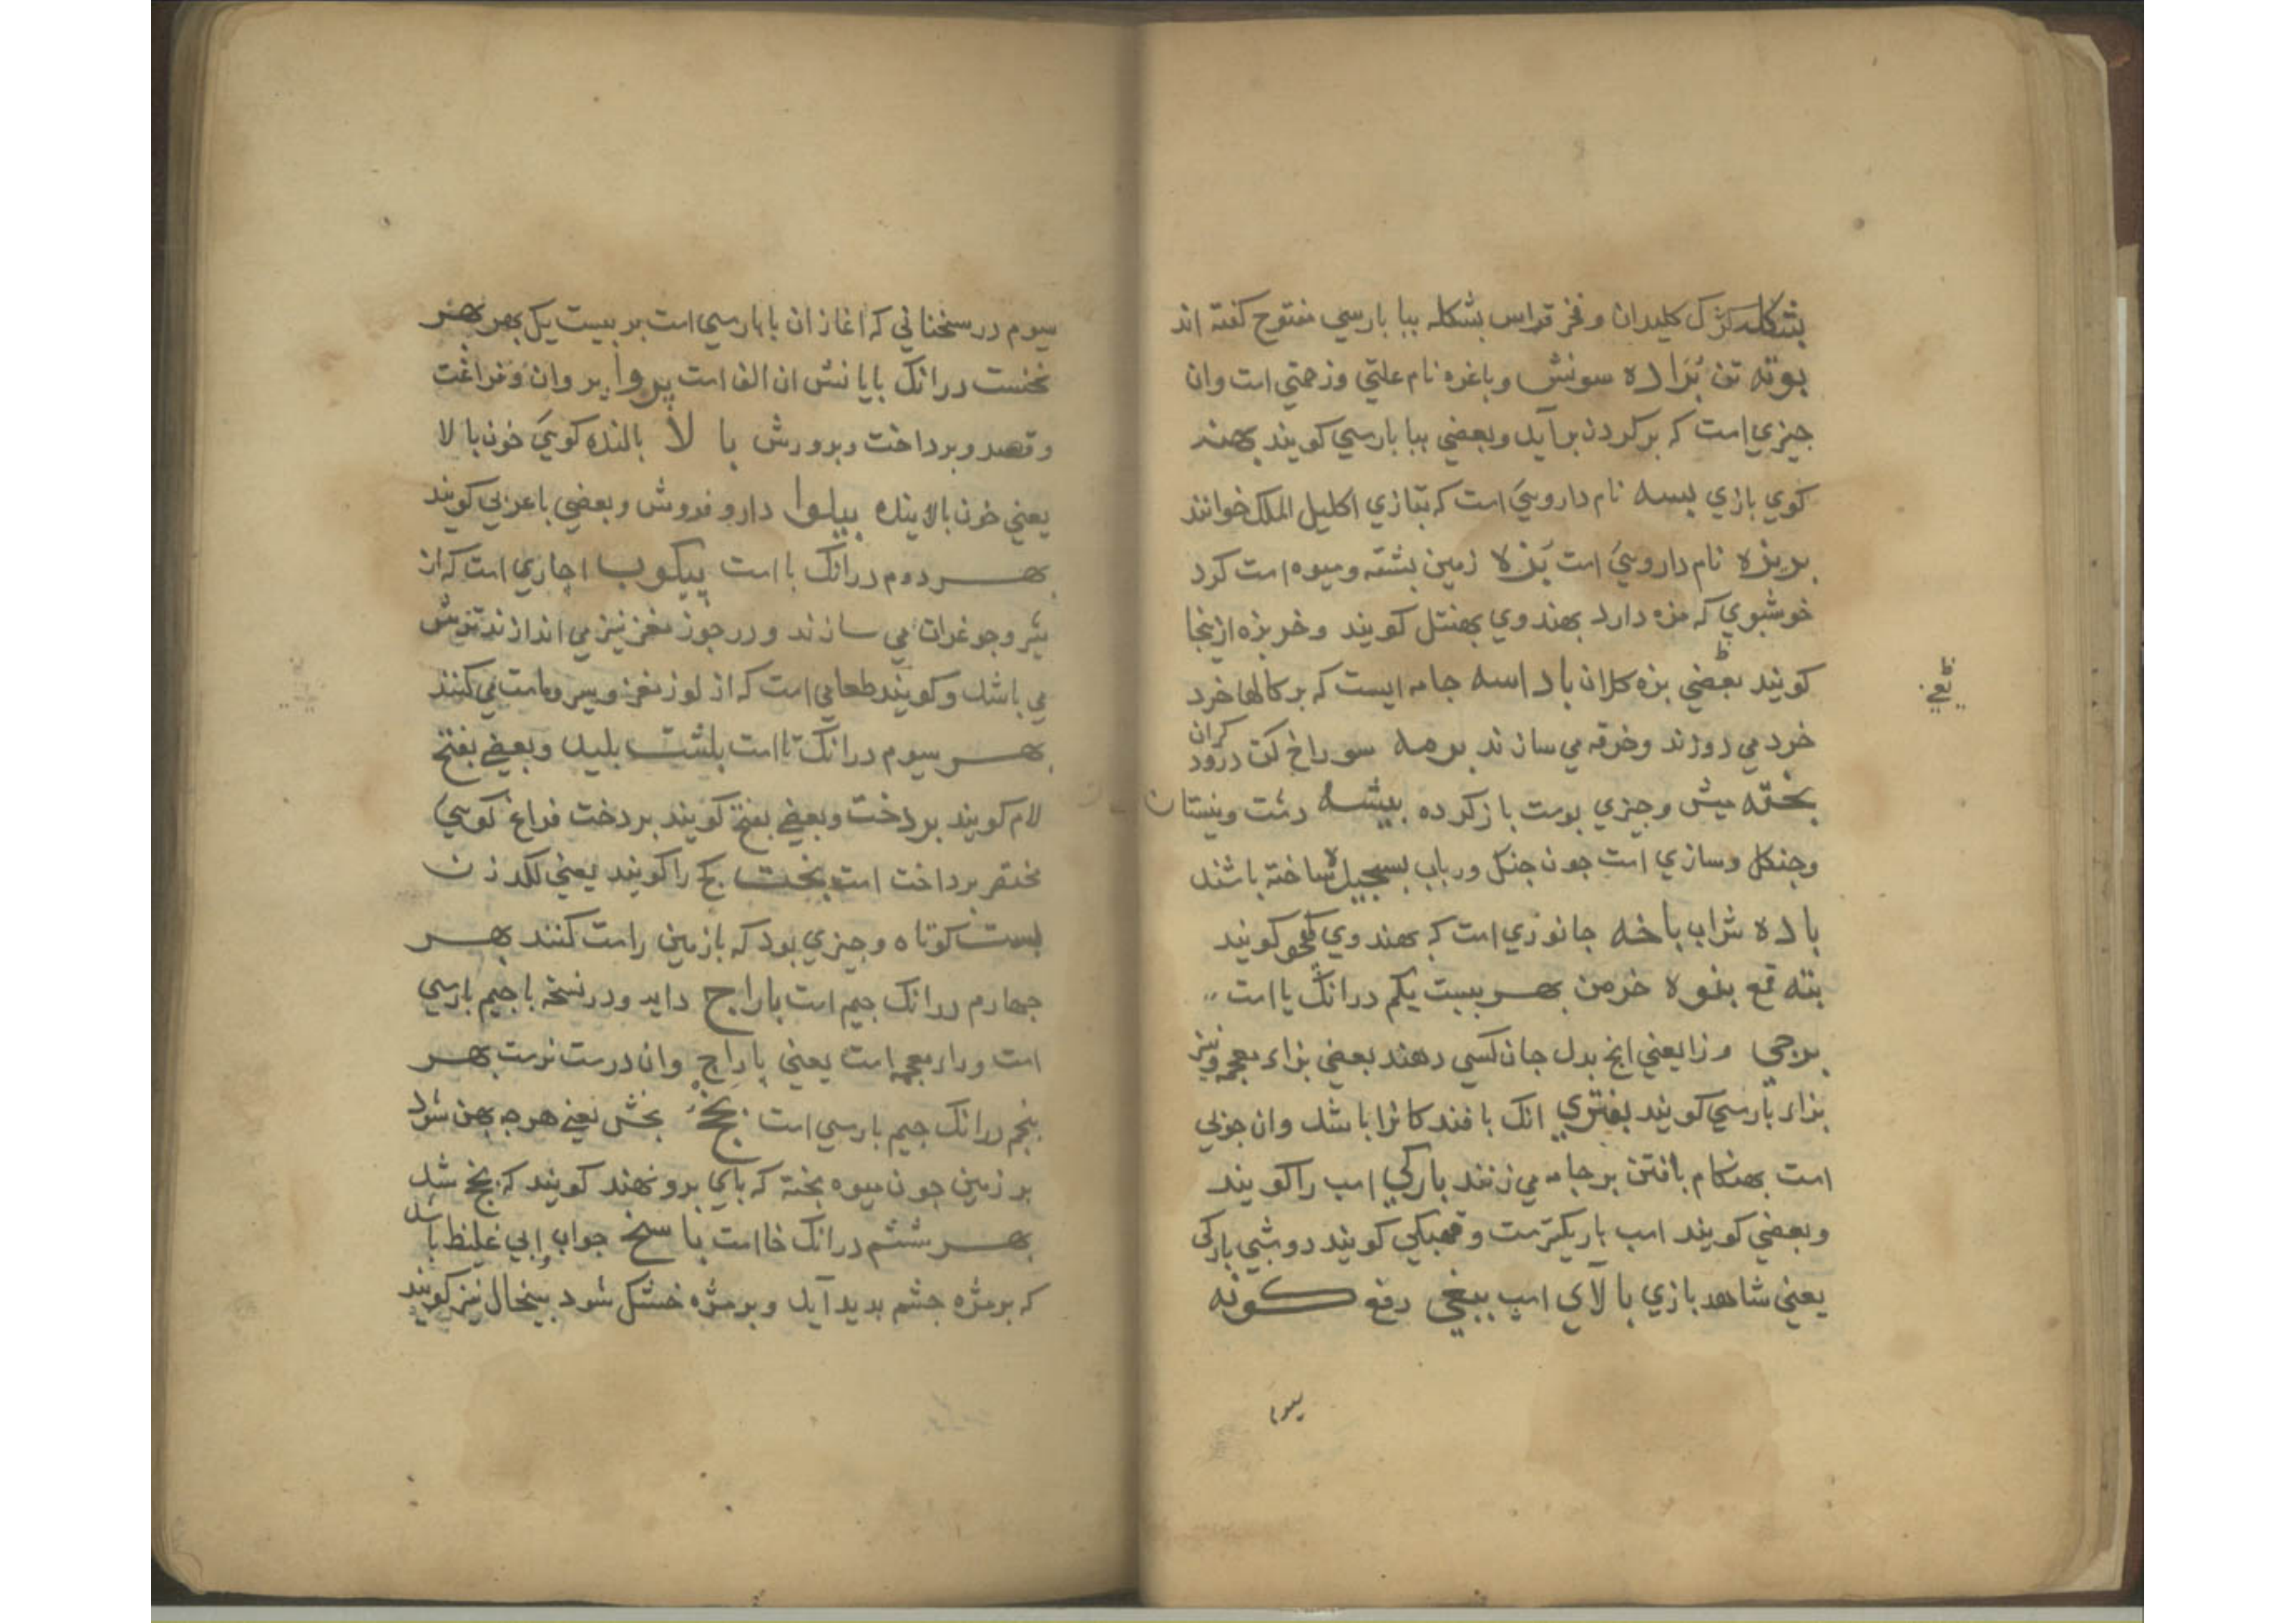 بشکله کژک کلیدان و فخر قواس بشکله ببا بارسي مفتوح کفته اند
بوته تن بُرَاده سونش وباغره نام علتي وزحمتي است وان
جیزي است که بر کردن برآید وبعضي ببا بارسي کویند بهنه
کوي بازي بسه نام دارویَي است که بتازي اکلیل الملک خوانند
بریزه نام دارویَي است بَزه زمین بشته و میوه است کرد
خوشبوي که مزه دارد بهندوي بهنتل کویند و خربزه ازینجا
کویند بعضي بزه کلان باداسه جامه ایست که برکالها خرد
خرد مي دوزند وخرقه مي سازند برمه سوراخ کن درود کران
بخته میش وجیزي بوست باز کرده بیشه دشت ونیستان
وجنکل وسازي است جون جنک ورباب بسیجیده ساخته باشند
باده شراب باخه جانوري است که بهندوي کجهو کویند
بته قمع بنوه خرمن بهر بیست یکم درانک یا است
برجي ورزا یعني انج بدل جان کسي دهند بعضي بزاء معجمه ونیز
بزاء بارسي کویند بفتري انک بافندکانرا باشد وان جوبي
است بهنکام بافتن بر جامه مي زنند بارکي اسب را کویند
وبعضي کویند اسب باریکترست وقحبکي کویند دوشبي بارکي
یعني شاهد بازي بالاي اسب ببغي دفع کونه
سیوم
یعي
سیوم در سخناني که اغاز ان با بارسي است بر بیست یک بهر بهر
نخست درانک بایانش ان الف است پروا پروان وفراغت
و قصد و برداخت وبرورش با لا بالنده کویَي خون با لا
یعني خون بالاینده پیلوا دارو فروش وبعضي با عربي کویند
بهر دوم درانک با است پیکوب اجاري است که از
شیر وجوغرات مي سازند و در جوز مغز نیز مي اندازند ترش
مي باشد وکویند طعامي است که از لوز مغز وسیر و ماست مي کنند
بهر سیوم درانک تا است بلشت بلید وبعضي بفتح
لام کویند بردخت وبعضي بفتح کویند بردخت فراغ کویي
مختصر برداخت است بخت بخ را کویند یعني لکد زن
بست کوتاه وجیزي بود که با زمین راست کنند بهر
جهارم درانک جیم است باراج داید ودر نسخه با جیم بارسي
است وراء معجمه است یعني پازاج وان درست ترست بهر
بنجم درانک جیم بارسي است بخچ بخش یعني هرجه بهن شود
بر زمین جون میوه بخته که باي برو نهند کویند که بخچ شد
بهر ششم درانک خا است با سخ جواب وابي غلیظ باشد
که بر مژه جشم بدید آید وبر مژه خشک شود بیخال نیز کویند